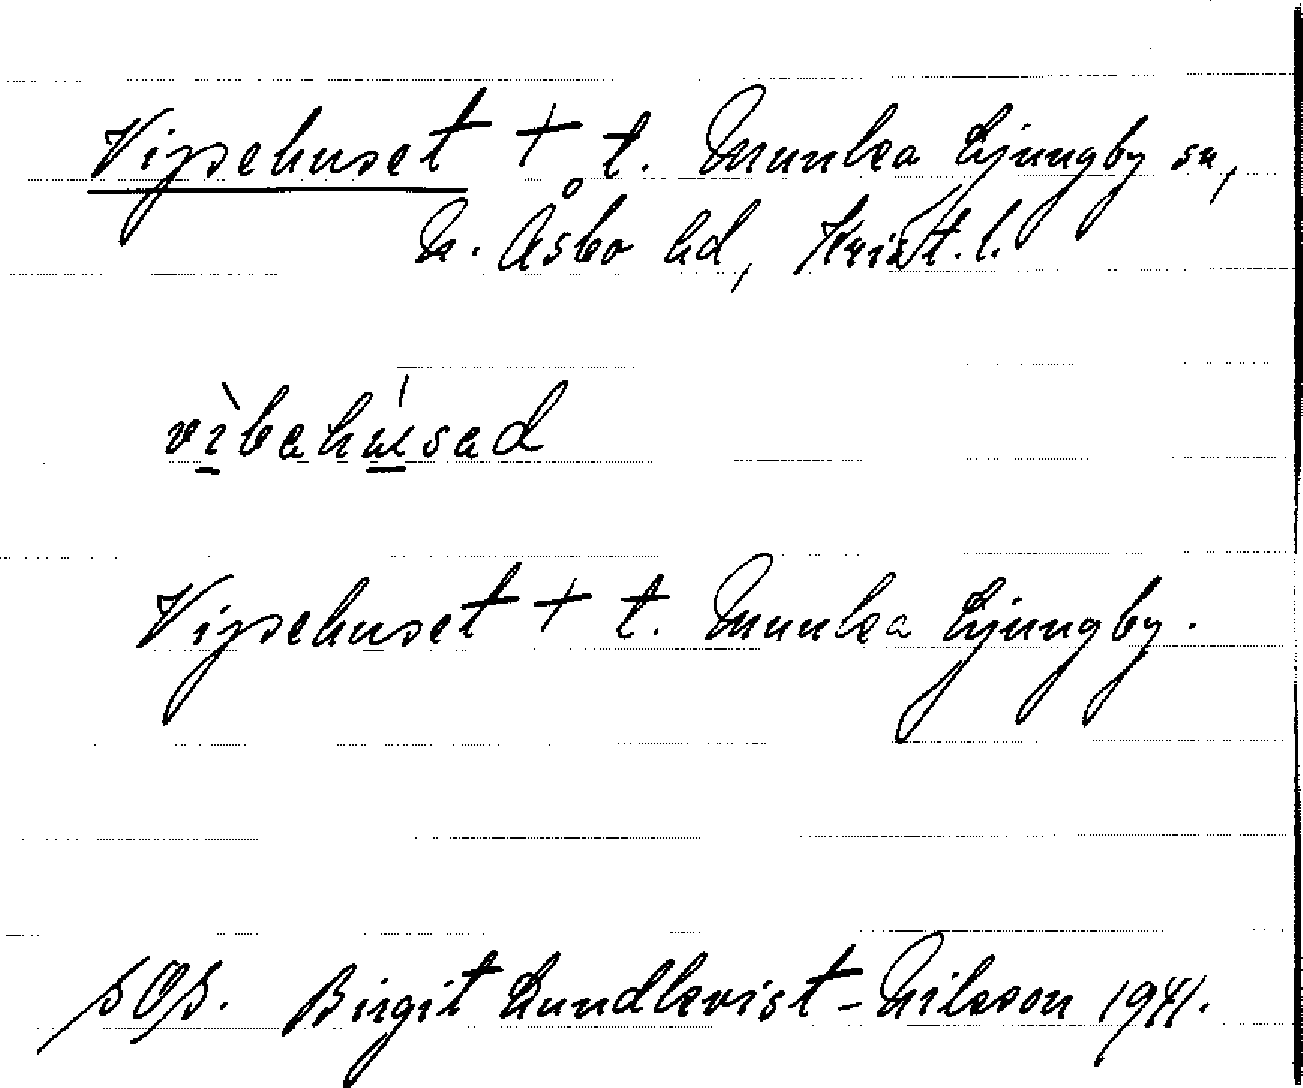 Vipehuset + t. Munka Ljungby sn,
N. Åsbo hd, Krist. l.
vìbahúsad
Vipehuset + t. Munka Ljungby.
Birgit Lundkvist-Nilsson 1941.